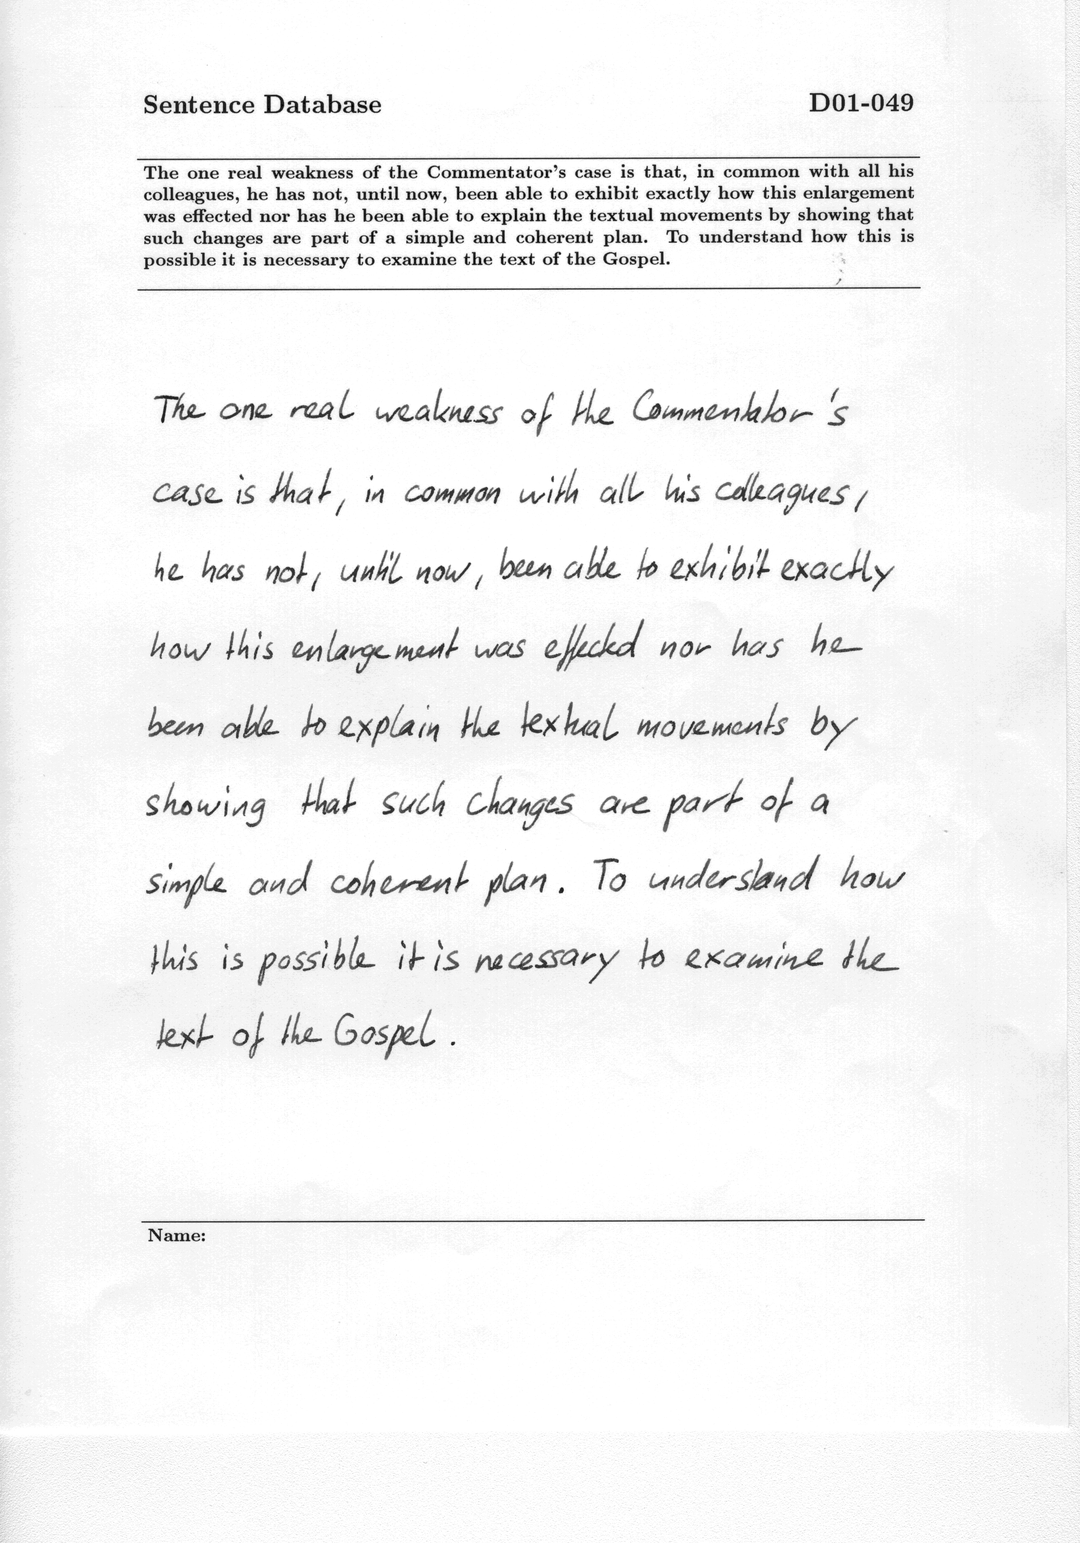 Sentence Database
D01-049
The one real weakness of the Commentator's case is that, in common with all his
colleagues, he has not, until now, been able to exhibit exactly how this enlargement
was effected nor has he been able to explain the textual movements by showing that
such changes are part of a simple and coherent plan. To understand how this is
possible it is necessary to examine the text of the Gospel.
The one real weakness of the Commentator's
case is that, in common with all his colleagues,
he has not, until now, been able to exhibit exactly
how this enlargement was effected nor has he
been able to explain the textual movements by
showing that such changes are part of a
simple and coherent plan. To understand how
this is possible it is necessary to examine the
text of the Gospel.
Name: